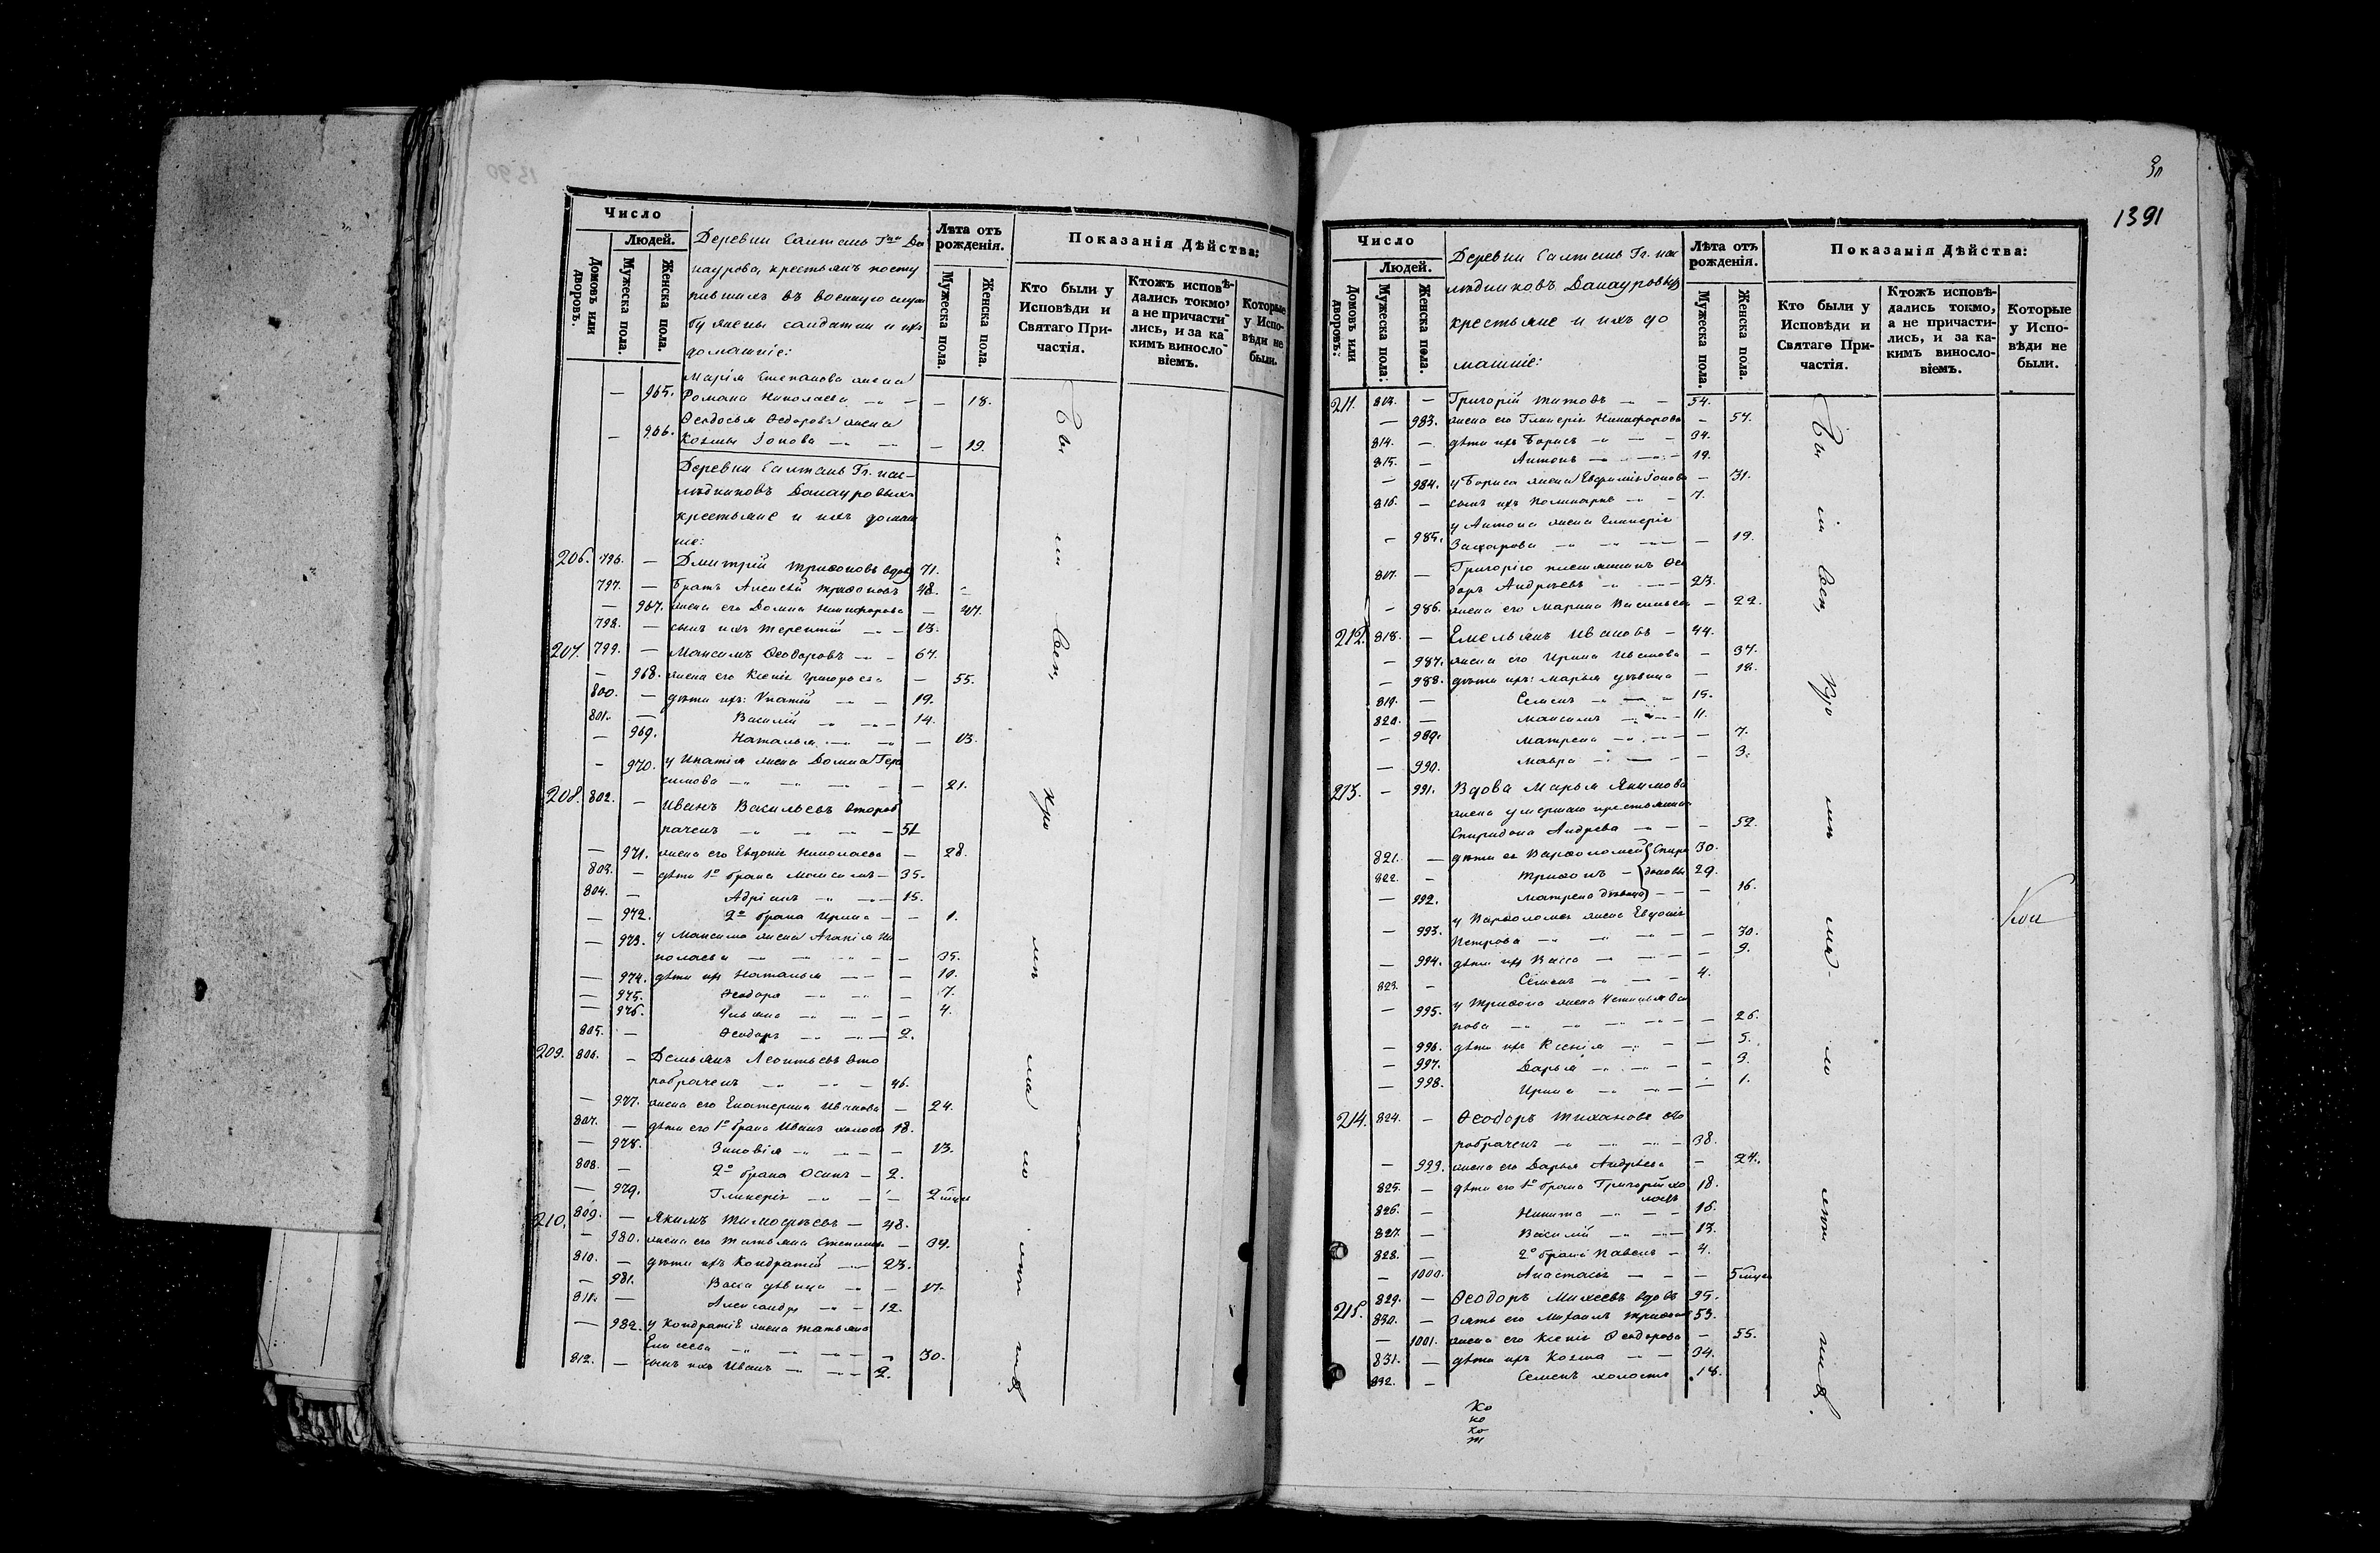 Число
Людей.
Домовъ или дворовъ.
Мужеска пола.
Женска пола.
Деревни Салтанъ Гна Да
наурова, крестьянъ посту
пившихъ въ военную служ
бу жены солдатки и ихъ
домашніе:
Лѣта отъ рожденія.
Мужеска пола.
Женска пола.
Показанія Дѣйства:
Кто были у Исповѣди и Святаго При-частія.
Ктожъ исповѣ-дались токмо, а не причасти-лись, и за ка-кимъ винословіемъ.
Которые у Испо-вѣди не были.
Марія Степанова жена
— 965. Романа Николаева — — 18.
Ѳеодосья Ѳедорова жена
— 966. Козмы Іонова — — 19.
Деревни Салтанъ Гг. нас-
лѣдниковъ Данауровыхъ
крестьяне и ихъ домаш
ніе:
206. 796. — Дмитрій Трифоновъ вдов 71.
797. — Братъ Алексѣй Трифоновъ 48.
— 967. жена его Домна Никифорова — 47.
798. — сынъ ихъ Терентій — 13.
207. 799. — Максимъ Ѳеодоровъ — 67.
— 968. жена его Ксенія Григорьева — 55.
800. — дѣти ихъ: Упатій — 19.
801. — Василій — 14.
— 969. Наталья — 13.
— 970. у Ипатія жена Домна Гера
симова — — 21.
208. 802. — Иванъ Васильевъ второб
раченъ — 51
— 971. жена его Евдокія Николаева — 28.
803. — дѣти 1о брака Максимъ — 35.
804. — Адріанъ — 15.
— 972. 2о брака Ирина — 1.
— 973. у Максима жена Агапія Ни
колаева — — 35.
— 974. дѣти ихъ Наталья — 10.
— 975. Ѳеодора — 7.
— 976. Ульяна — 4.
805. — Ѳеодоръ — 2.
209. 806. — Демьянъ Леонтьевъ вто
робраченъ — 46.
— 977. жена его Екатерина Иванова — 24.
807. — дѣти его 1о брака Иванъ холостъ 18.
— 978. Зиновія — 13.
808. — 2о брака Осипъ — 2.
— 979. Гликерія — 2 мца
210. 809. — Якимъ Тимофѣевъ — 48.
— 980. жена его Татьяна Степанова — 34.
810. — дѣти ихъ Кондратій — 23.
— 981. Васса дѣвица — 17.
811. — Александръ — 12.
— 982. у Кондратія жена Татьяна
Елисеева — — 30.
812. — сынъ ихъ Иванъ — 2.
1391
Число
Людей.
Домовъ или дворовъ.
Мужеска пола.
Женска пола.
Деревни Салтанъ Гг. нас
лѣдниковъ Данауровыхъ
крестьяне и ихъ до
машніе:
Лѣта отъ рожденія.
Мужеска пола.
Женска пола.
Показанія Дѣйства:
Кто были у Исповѣди и Святаго При-частія.
Ктожъ исповѣ-дались токмо, а не причасти-лись, и за ка-кимъ винословіемъ.
Которые у Испо-вѣди не были.
211. 813. — Григорій Титовъ — 54.
— 983. жена его Гликерія Никифорова — 54.
814. — дѣти ихъ Борисъ — 34.
815. — Антонъ — 19.
— 984. у Бориса жена Евфимія Іонова — 31.
816. — сынъ ихъ Поликарпъ — 7.
у Антона жена Гликерія
— 985. Захарова — — 19.
Григорію племянникъ Ѳео
817. — доръ Андрѣевъ — 23.
— 986. жена его Марина Васильева — 22.
212. 818. — Емельянъ Ивановъ — 44.
— 987. жена его Ирина Иванова — 37.
— 988. дѣти ихъ: Марья дѣвица — 18.
819. — Семенъ — 15.
820. — Максимъ — 11.
— 989. Матрена — 7.
— 990. Мавра — 3.
213. — 991. Вдова Марья Якимова
жена умершаго крестьянина
Спиридона Андрѣева — — 52.
821. — дѣти ея Варфоломей Спири 30.
822. — Трифонъ доновы 29.
— 992. Матрена дѣвица — 16.
у Варфоломея жена Евдокія
— 993. Петрова — — 30.
— 994. дѣти ихъ Васса — 9.
823. — Семенъ — 4.
— 995. у Трифона жена Устинья Оси
пова — — 26.
— 996. дѣти ихъ Ксенія — 5.
— 997. Дарья — 3.
— 998. Ирина — 1.
214. 824. — Ѳеодоръ Тихановъ вто
робраченъ — 38.
— 999. жена его Дарья Андрѣева — 24.
825. — дѣти его 1о брака Григорій хо 18.
лостъ
826. — Никита — 16.
827. — Василій — 13.
828. — 2о брака Павелъ — 4.
— 1000. Анастасія — 5 мцов
215. 829. — Ѳеодоръ Михѣевъ вдовъ 95.
830. — Зять его Михаилъ Трифоновъ 53.
— 1001. жена его Ксенія Ѳеодорова — 55.
831. — дѣти ихъ Козма — 34.
832. — Семенъ холостъ 18.